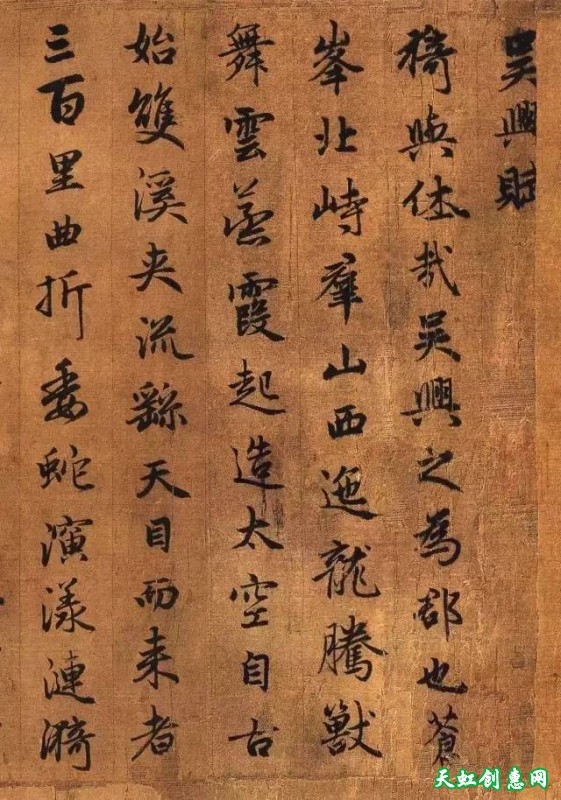 吴興賦
猗與休哉吴興之為郡也蒼
峯北峙羣山西迤龍騰獸
舞雲蒸霞起造太空自古
始雙溪夾流繇天目而来者
三百里曲折委蛇演漾漣漪
天虹创惠网